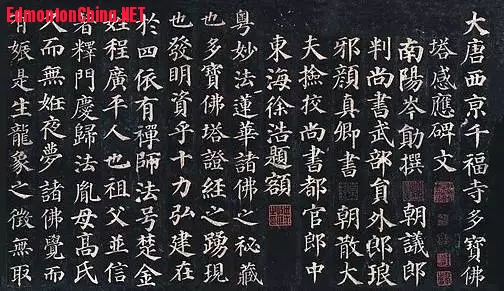 EdmontonChina.NET
大唐西京千福寺多寶佛
塔感應碑文
南陽岑勛撰 朝議郎
判尚書武部員外郎琅
邪顏真卿書 朝散大
夫撿挍尚書都官郎中
東海徐浩題額
粵妙法蓮華諸佛之秘藏
也多寶佛塔證經之踴現
也發明資乎十力弘建在
於四依有禪師法号楚金
姓程廣平人也祖父並信
著釋門慶歸法胤母高氏
久而無姙夜夢諸佛覺而
有娠是生龍象之徵無取